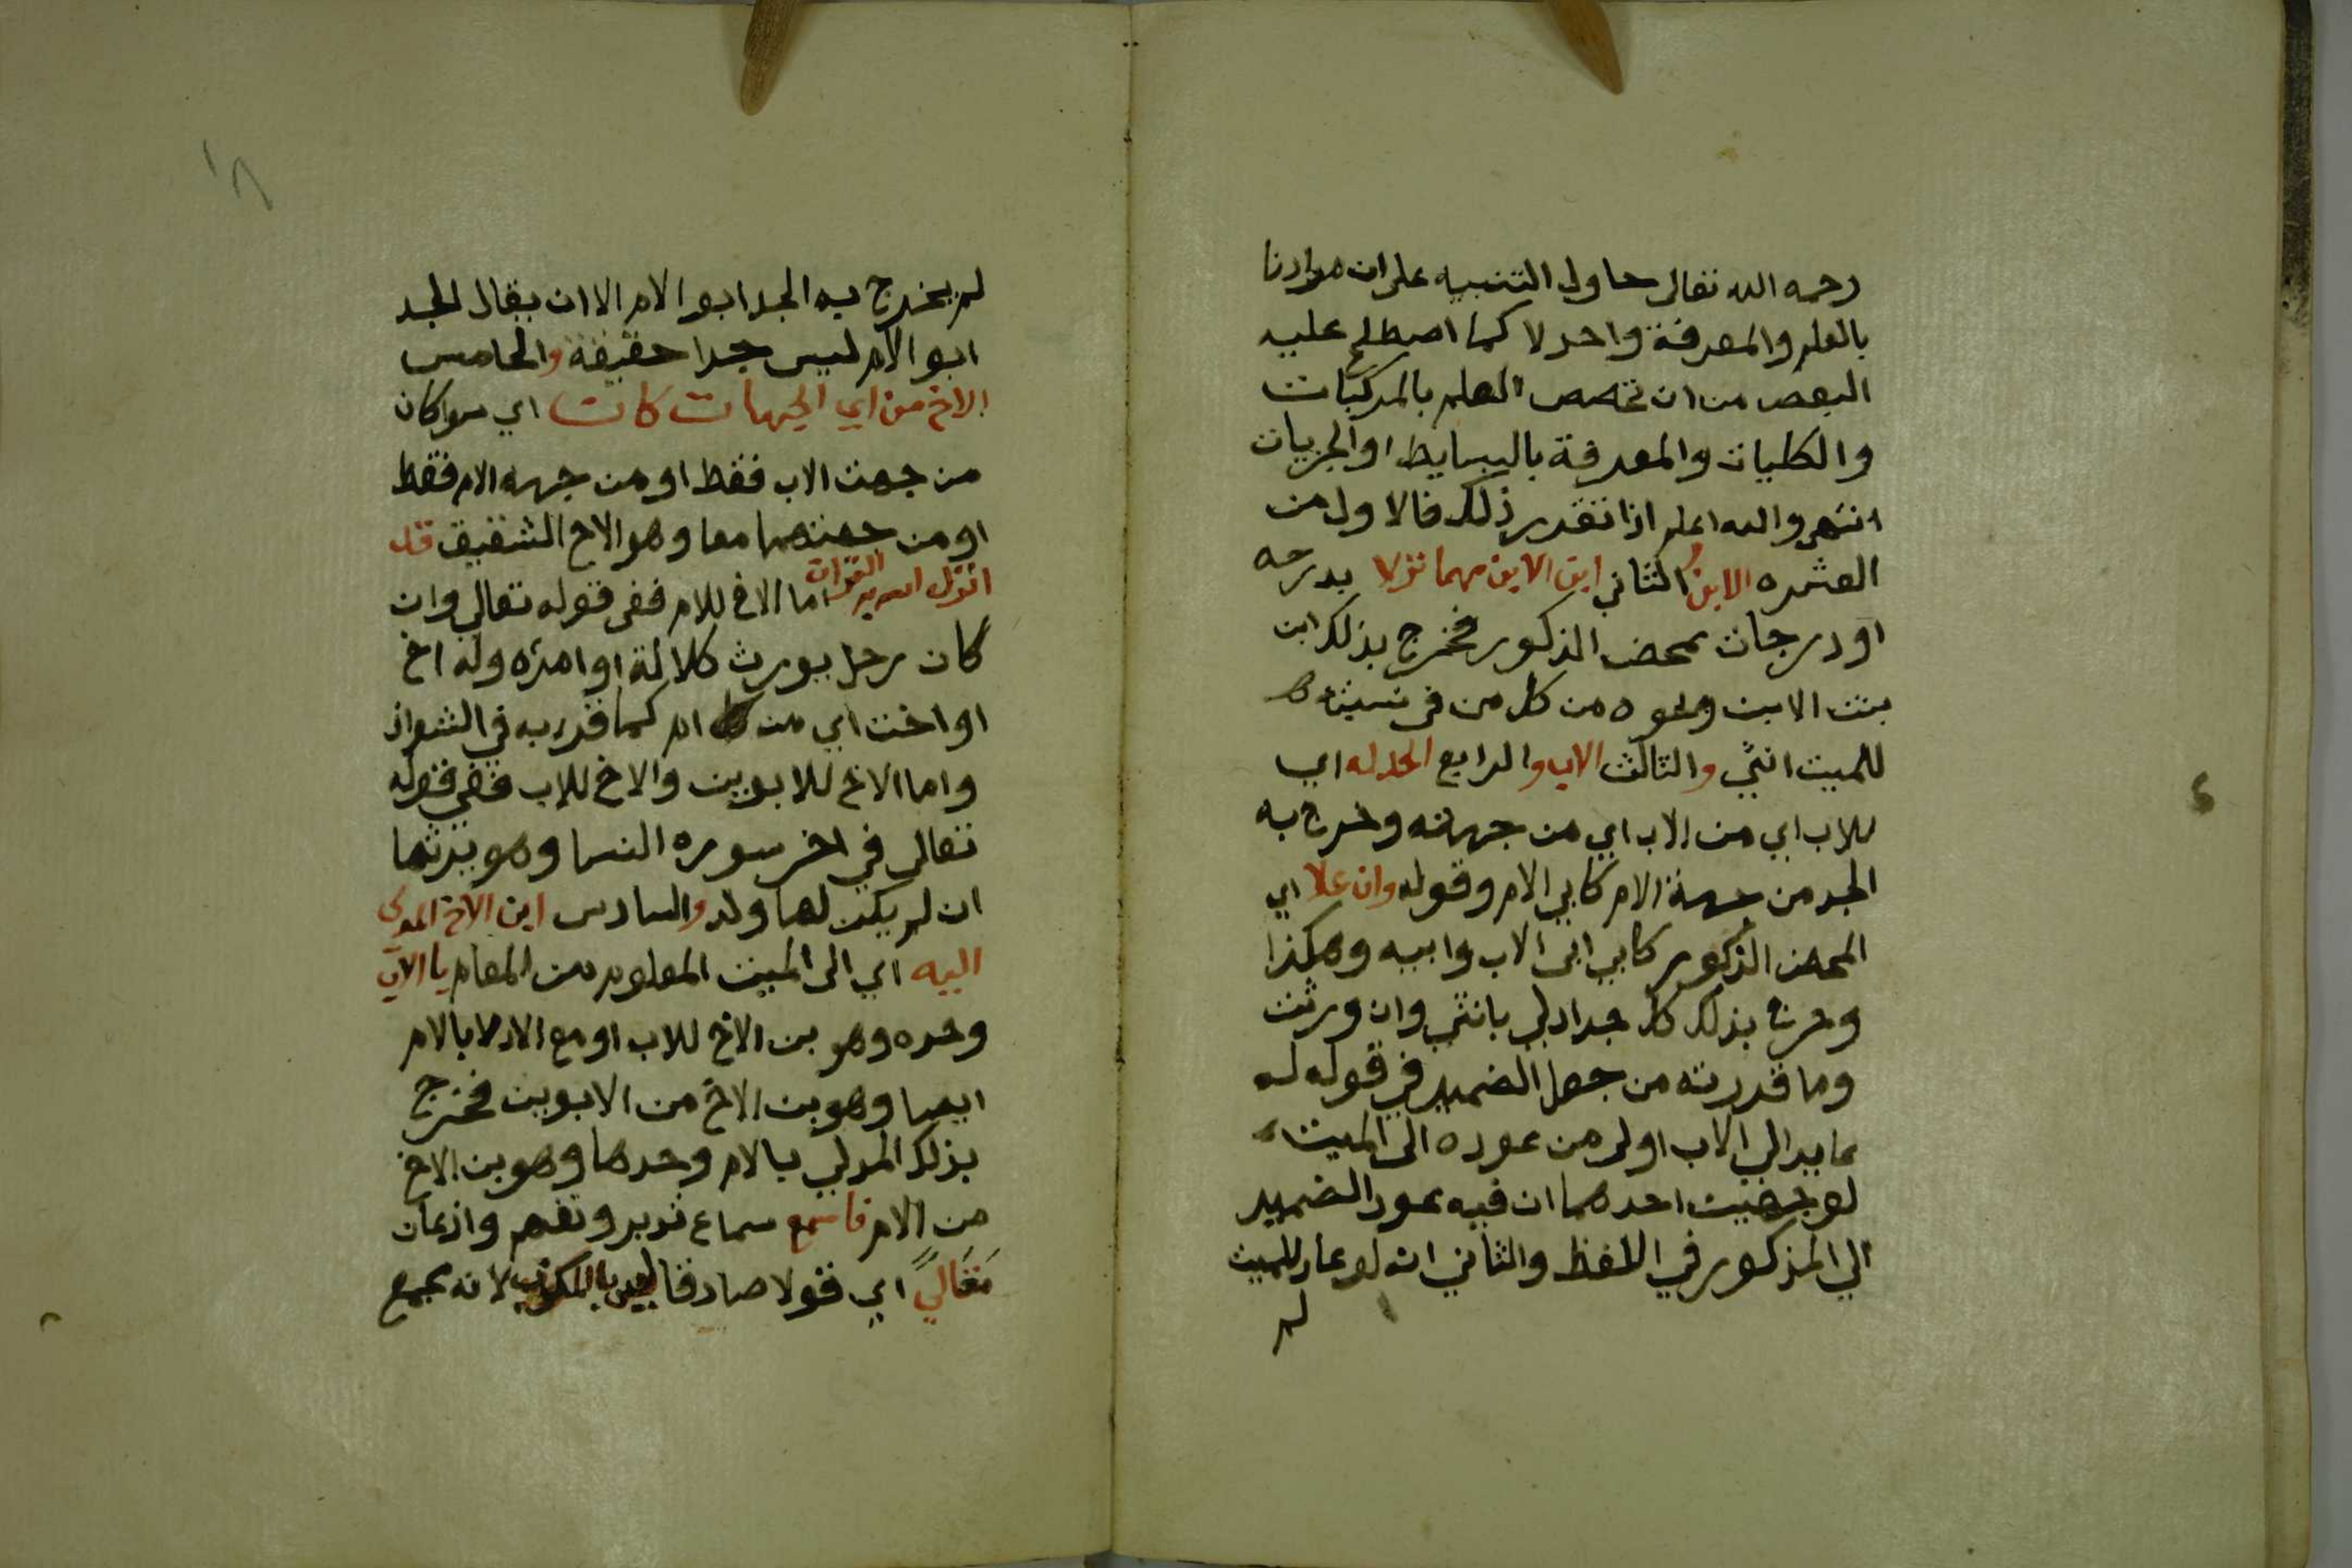 رحمه الله تعالى حاول التنبيه على ان مرادنا
بالعلم والمعرفة واحد لا كما اصطلح عليه
البعض من ان تخصص العلم بالمركبات
والكليات والمعرفة بالبسايط او الجزييات
انتهى والله اعلم اذا تقدر ذلك فالاول من
العشره الابن والثاني ابن الابن مهما نزلا بدرجه
او درجات بمحض الذكور فخرج بذلك ابن
بنت الابن ونحوه من كل من في نسبته
للميت انثى والثالث الاب والرابع الجد له اي
للاب اي من الاب اي من جهته وخرج به
الجد من جهة الام كابي الام وقوله وان علا اي
بمحض الذكور كابي ابي الاب وابيه وهكذا
وخرج بذلك كل جد ادلى بانثى وان ورثت
وما قدرته من جعل الضمير في قوله له
عايد الى الاب اولى من عوده الى الميت
لوجهين احدهما ان فيه عود الضمير
الى المذكور في اللفظ والثاني انه لو عاد للميت
لم
١٨
لم يخرج به الجد ابو الام الا ان يقال الجد
ابو الام ليس جدا حقيقة والخامس
الاخ من اي الجهات كانت اي سوا كان
من جهت الاب فقط او من جهه الام فقط
او من جهتهما معا وهو الاخ الشقيق قد
انزل الله به القرآن اما الاخ للام ففي قوله تعالى وان
كان رجل يورث كلالة او امرأه وله اخ
او اخت اي من ام كما قري به في الشواذ
واما الاخ للابوين والاخ للاب ففي قوله
تعالى في اخر سوره النسا وهو يرثها
ان لم يكن لها ولد والسادس ابن الاخ المدلي
اليه اي الى الميت المعلوم من المقام بالاب
وحده وهو بن الاخ للاب او مع الادلا بالام
ايضا وهو بن الاخ من الابوين فخرج
بذلك المدلي بالام وحدها وهو بن الاخ
من الام فاسمع سماع تدبر وتفهم واذعان
مقالاً اي قولا صادقا ليس بالمكذب لانه مجمع